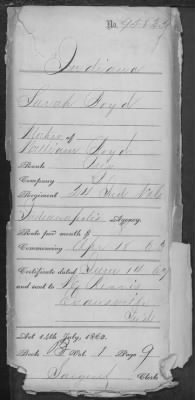 No. 95823
Indiana
Sarah Boyd
Mother of
William Boyd
Rank
Company
Regiment 24 Ind Vols
Indianapolis Agency.
Rate per month $
Commencing Apr 10 63
Certificate dated June 14 67
and sent to
Evansville
Ind
Act 14th July, 1862.
Book Vol. 1 Page 9
Clerk